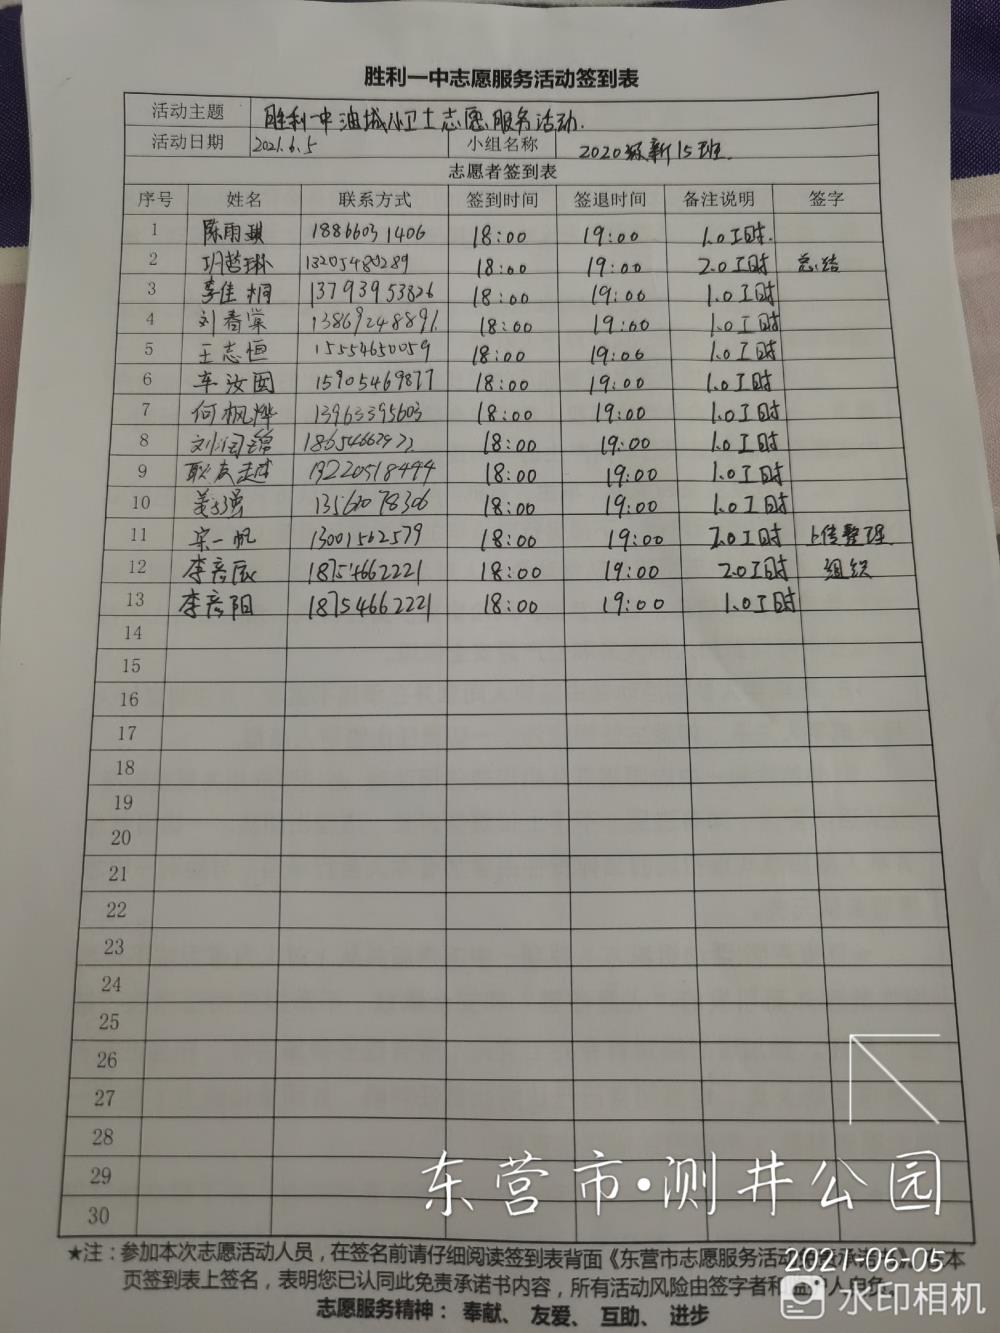 胜利一中志愿服务活动签到表
活动主题 胜利一中油城小卫士志愿服务活动.
活动日期 2021.6.5 小组名称 2020级新15班.
志愿者签到表
序号 姓名 联系方式 签到时间 签退时间 备注说明 签字
1 陈雨琪 18866031406 18:00 19:00 1.0工时.
2 巩哲琳 13205480289 18:00 19:00 2.0工时 总结
3 李佳桐 13793953826 18:00 19:00 1.0工时
4 刘春棠 13869248891 18:00 19:00 1.0工时
5 王志恒 15554650059 18:00 19:00 1.0工时
6 车汝囡 15905469877 18:00 19:00 1.0工时
7 何枫烨 13963395603 18:00 19:00 1.0工时
8 18:00 19:00 1.0工时
9 耿友越 13220518444 18:00 19:00 1.0工时
10 13561078306 18:00 19:00 1.0工时
11 宋一帆 13001562579 18:00 19:00 2.0工时 上传整理
12 李彦辰 18754662221 18:00 19:00 2.0工时 组织
13 李彦阳 18754662221 18:00 19:00 1.0工时
14
15
16
17
18
19
20
21
22
23
24
25
26
27
28
29
30
东营市•测井公园
★注：参加本次志愿活动人员，在签名前请仔细阅读签到表背面《东营市志愿服务活动 本
2021-06-05
页签到表上签名，表明您已认同此免责承诺书内容，所有活动风险由签字者和监护人自负。
水印相机
志愿服务精神： 奉献、 友爱、 互助、 进步